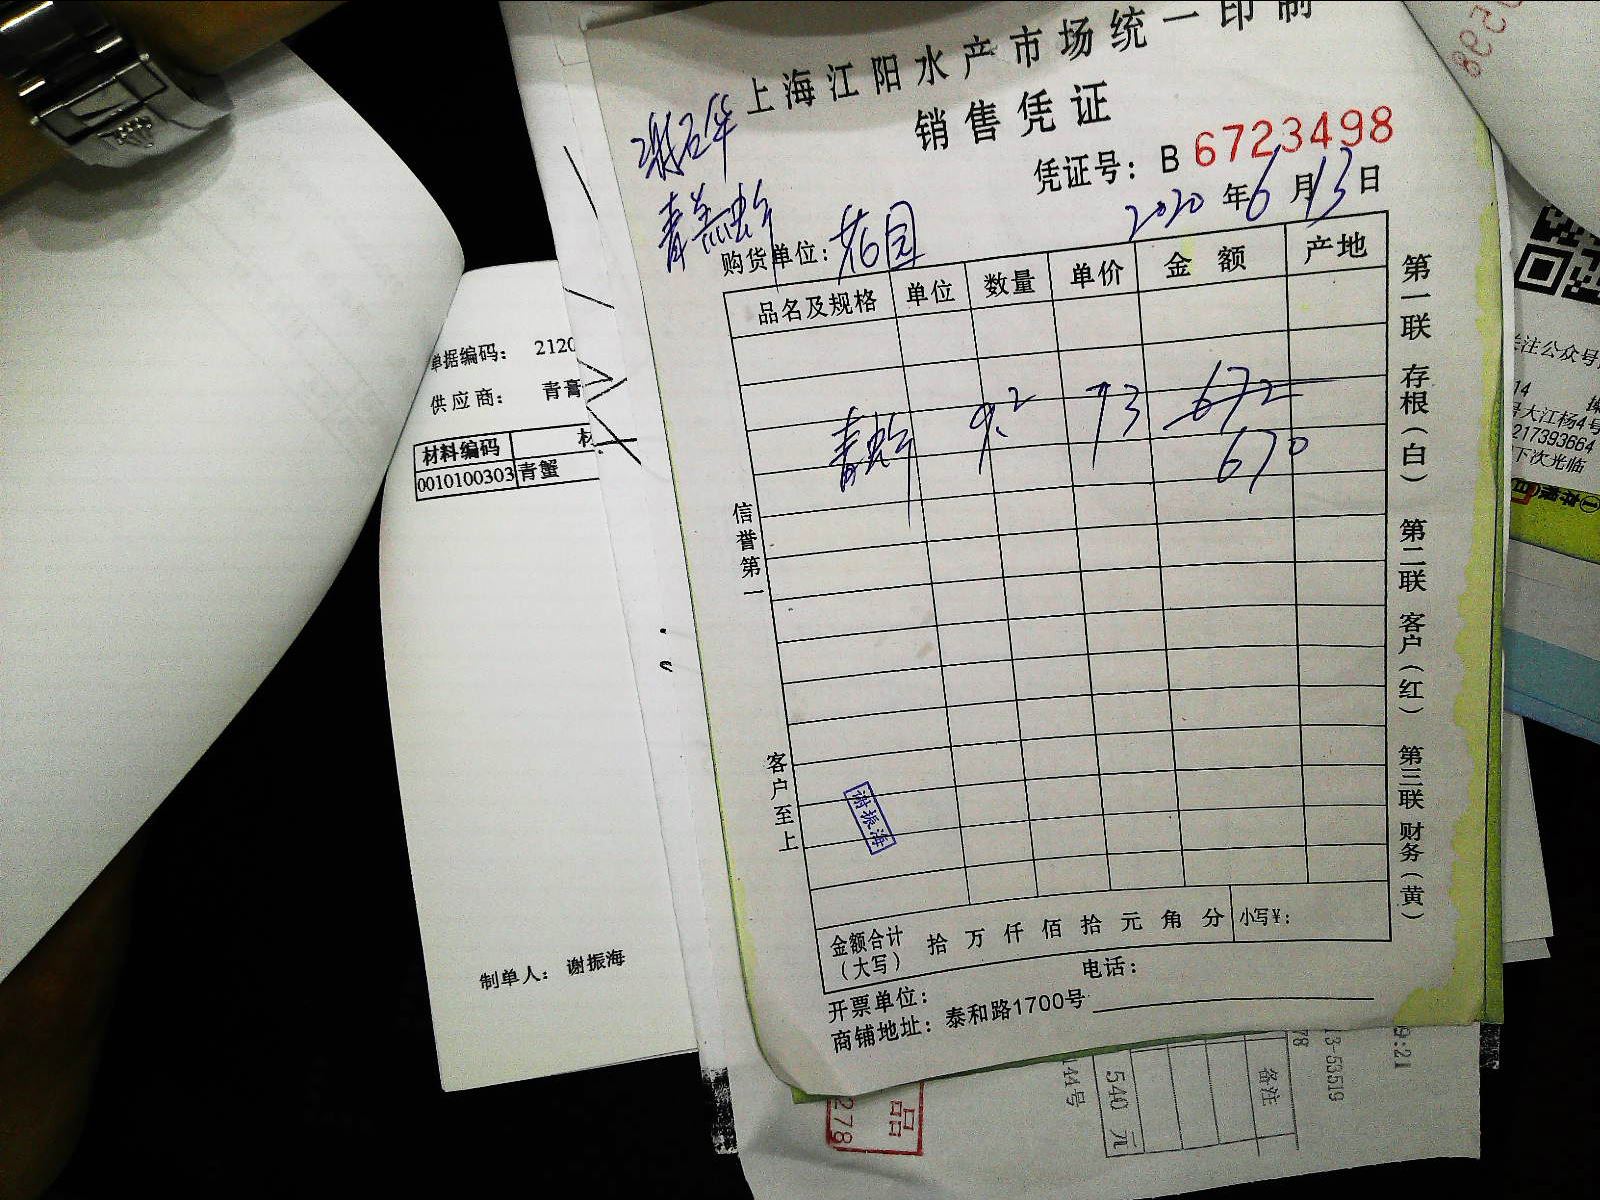 上海江阳水产市场统一印制
销售凭证
凭证号：B 6723498
2020 年 6 月 13 日
购货单位：花园
品名及规格 单位 数量 单价 金额 产地
672
9.2 73 670
信誉第一
客户至上
谢振海
金额合计（大写） 拾 万 仟 佰 拾 元 角 分 小写¥：
开票单位： 电话：
商铺地址：泰和路1700号
第一联 存根（白） 第二联 客户（红） 第三联 财务（黄）
单据编码： 2120
供应商： 青膏
材料编码 材
0010100303 青蟹
制单人： 谢振海
关注公众号
14
号大江杨4号
217393664
下次光临
9:21
13-53519
78
备注
540 元
44号
278